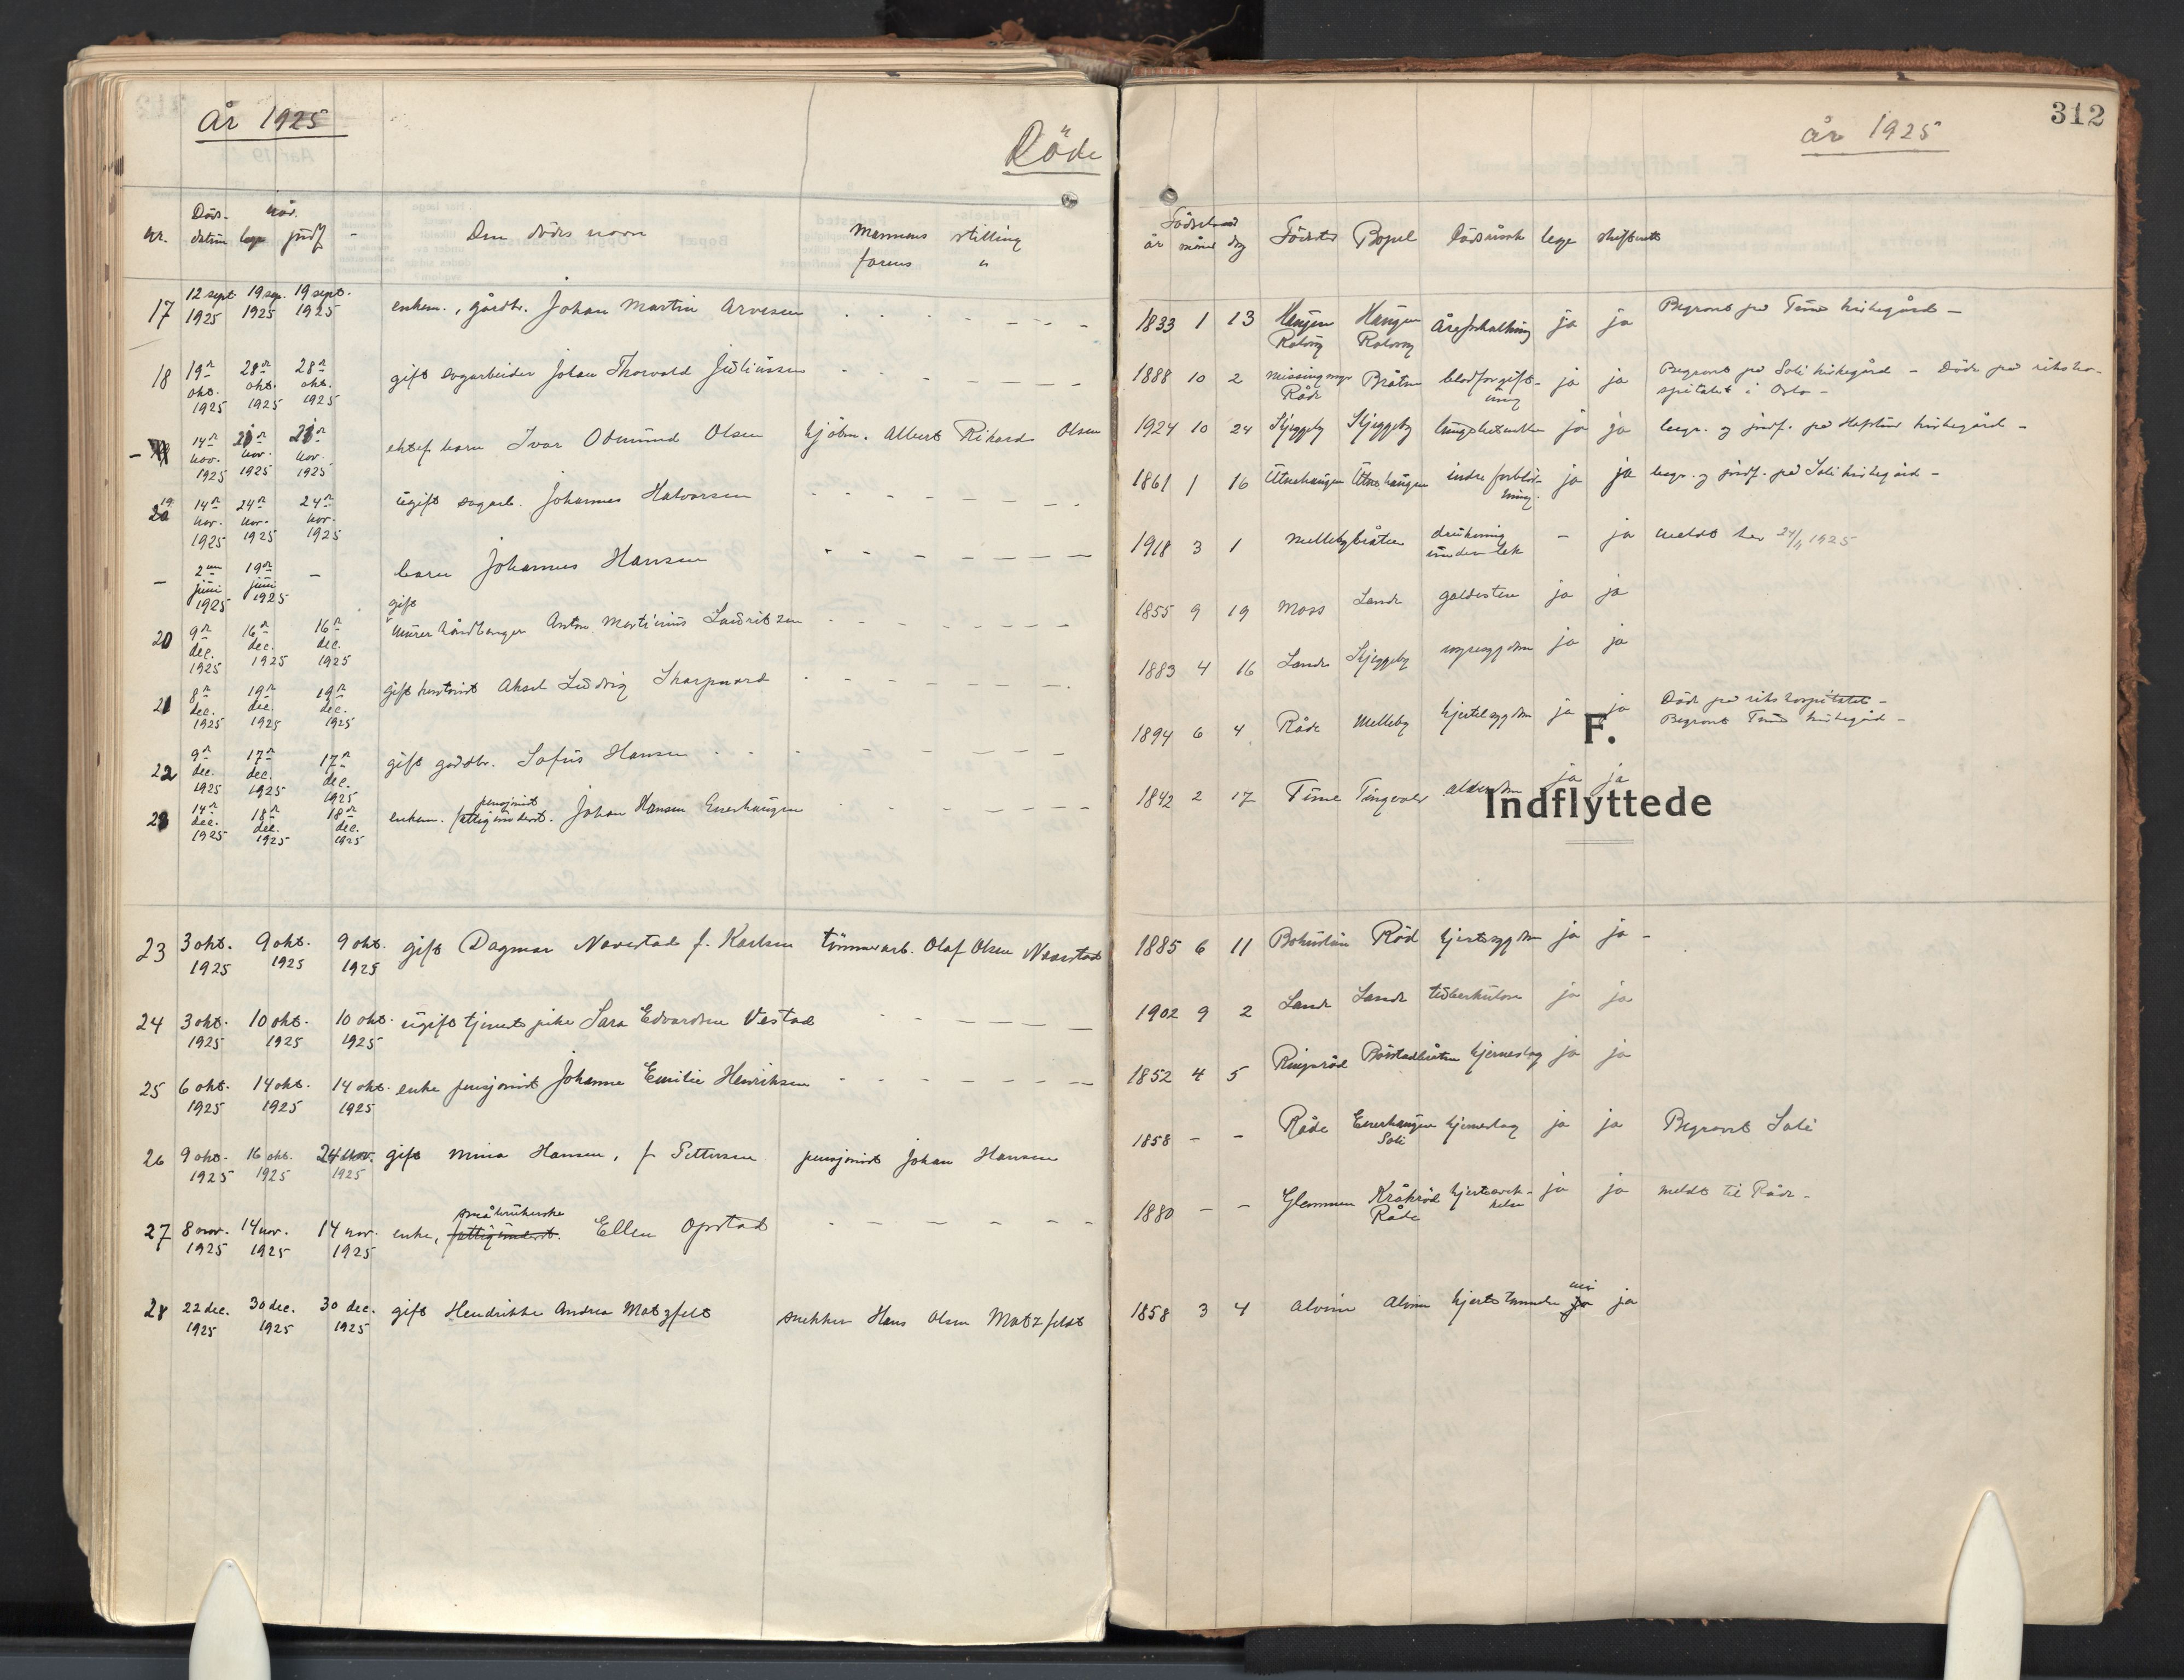 År 1925
Döde
Nr. Döds- når.
datum begr. jordf. - Den dødes navn Mannens stilling
farens "
17 12 sept. 19 sep. 19 sept.
1925 1925 1925 enkem., gårdbr. Johan Martin Arvesen
18 19de 28de 28de
okt. okt. okt. gift sagarbeider Johan Thorvald Juliussen
1925 1925 1925
14de
nov. nov. nov. ektef. barn Ivar Odmund Olsen kjøbm. Albert Rikard Olsen
1925 1925 1925
19 14de 24de 24de
nov. nov. nov. ugift sagarb. Johannes Halvorsen
1925 1925 1925
- 2den 19de -
juni juni barn Johannes Hansen
1925 1925
gift
20 9de 16de 16de murerhåndlanger Anton Martinius Lauritzen
dec. dec. dec.
1925 1925 1925
21 8de 19de 19de gift Aksel Ludvig Skarpnord
dec. dec. dec.
1925 1925 1925
22 9de 17de 17de gift gårdbr. Sofus Hansen
dec. dec. dec.
1925 1925 1925
pensjonist
14de 18de 18de enkem. fattigunderst. Johan Hansen Enerhaugen
dec. dec. dec.
1925 1925 1925
23 3 okt. 9 okt. 9 okt. gift Dagmar Navestad f. Karlsen tømmerarb. Olaf Olsen Navestad
1925 1925 1925
24 3 okt. 10 okt. 10 okt. ugift tjenestepike Sara Edvardsen Vestad
1925 1925 1925
25 6 okt. 14 okt. 14 okt. enke pensjonist Johanne Emilie Henriksen
1925 1925 1925
26 9 okt. 16 okt. 24 nov. gift Mina Hansen, f. Pettersen pensjonist Johan Hansen
1925 1925 1925
småbrukerske
27 8 nov. 14 nov. 14 nov. enke, fattigunderst. Ellen Opstad
1925 1925 1925
28 22 dec. 30 dec. 30 dec. gift Hendrikke Andrea Matzfelt snekker Hans Olsen Matzfeldt
1925 1925 1925
312
år 1925
år måned dag Födested Bopel Dödsårsak lege skifterett
1833 1 13 Haugen Haugen Åreforkalkning ja ja Begravet på Tune kirkegård -
Rolvsøy Rolvsøy
1888 10 2 Missingmyr Bråten blodforgift- ja ja Begravet på Soli kirkegård - Døde på riksho-
Råde ning spitalet i Oslo -
1924 10 24 Skjeggeby Skjeggeby lungebetennelse ja ja begr. og jordf. på Hafslund kirkegård -
1861 1 16 Utnehaugen Utnehaugen indre forblød- ja ja begr. og jordf. på Soli kirkegård -
ning.
1918 3 1 Mellebybråten drukning - ja meldt her 24/11 1925
under lek
1855 9 19 Moss Lande galdesten ja ja
1883 4 16 Lande Skjeggeby nyresygdom ja ja
1894 6 4 Råde Melleby hjertesygdom ja ja Døde på rikshospitalet -
Begravet Tune kirkegård -
F.
1842 2 17 Tune Tingvold alderdom ja ja
Indflyttede
1885 6 11 Bohuslän Rød hjertesygdom ja ja -
1902 9 2 Lande Lande tuberkulose ja ja
1852 4 5 Ringsrød hjerneslag ja ja
1858 - - Råde Enerhaugen hjerneslag ja ja Begravet Soli
Soli
1880 - - Glemmen Kråkrød ja ja meldt til Råde -
Råde
nei
1858 3 4 Alvim Alvim hjertelammelse ja ja